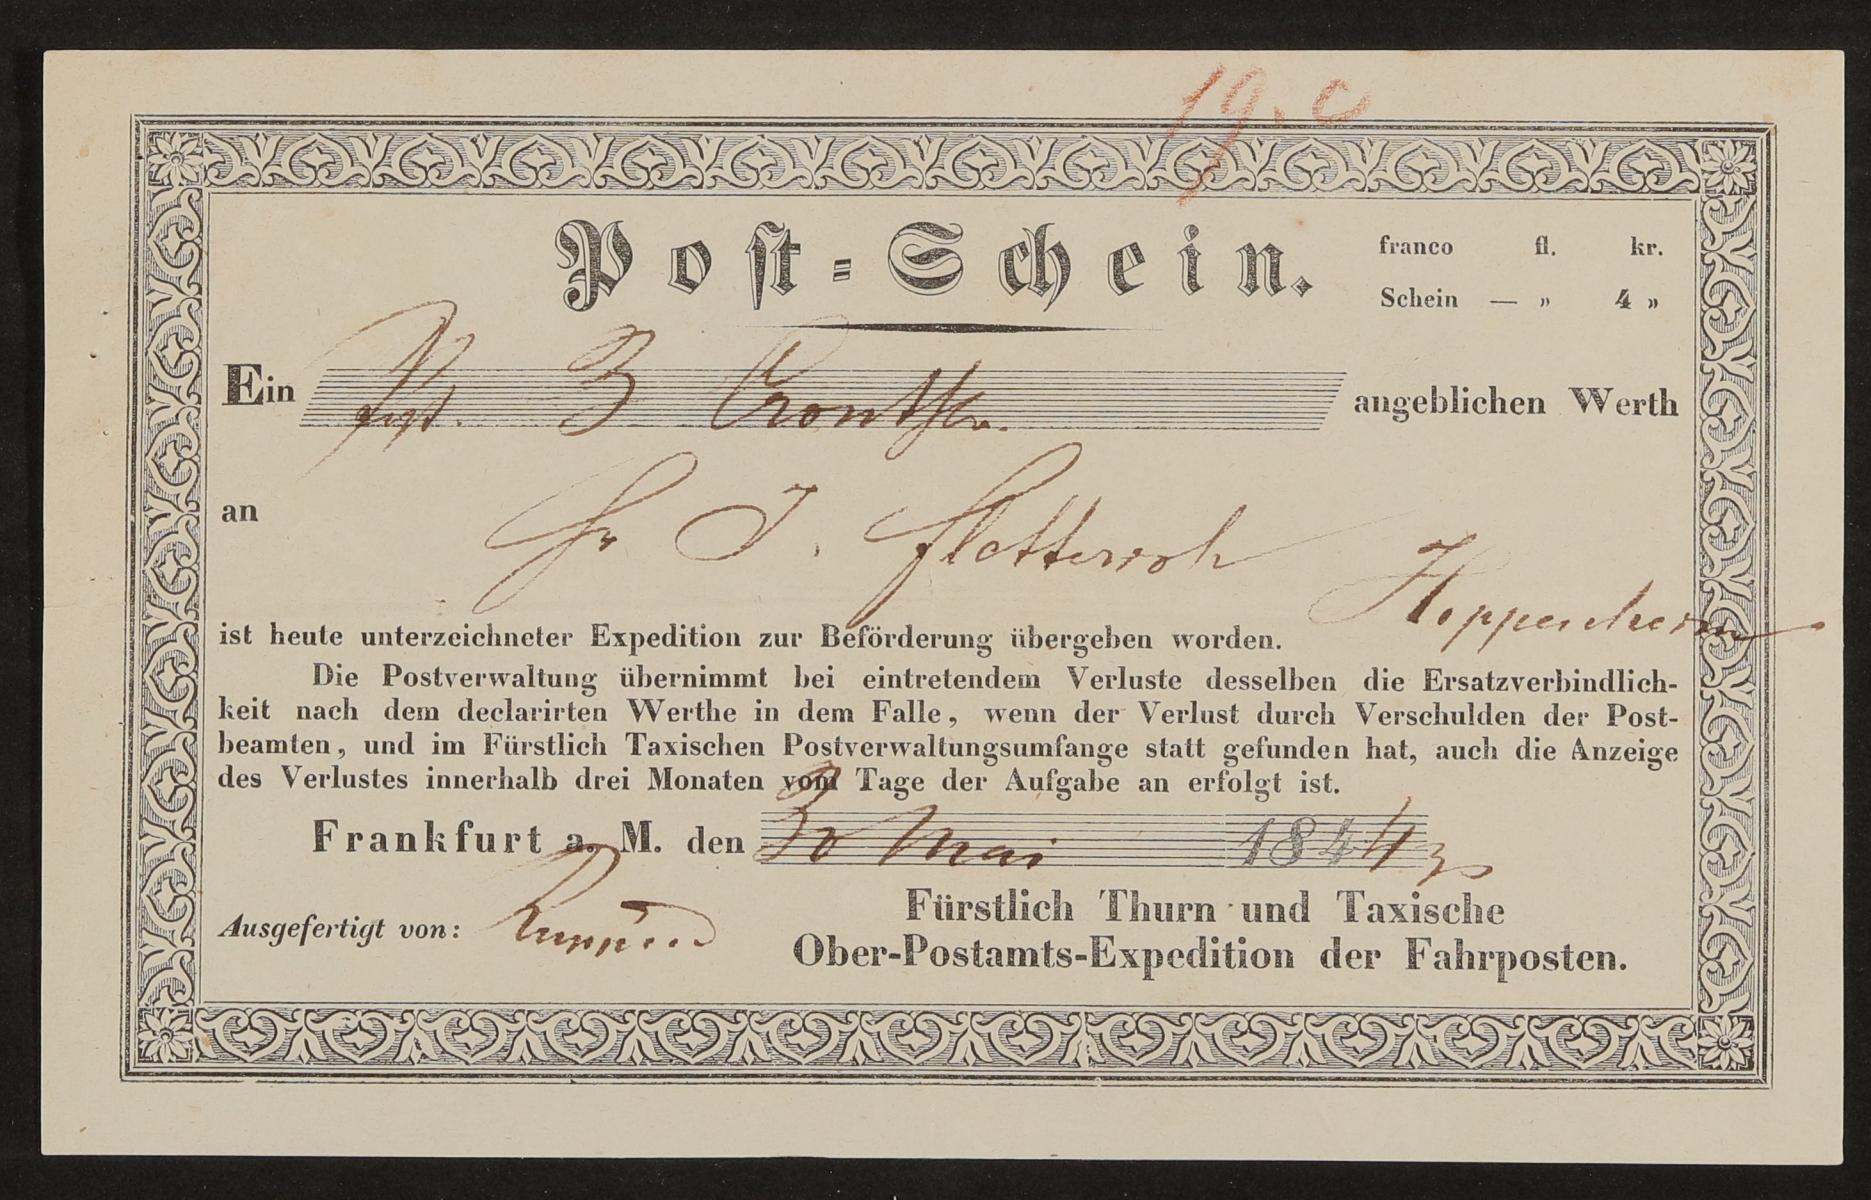 19. c
Post-Schein.
franco fl. kr.
Schein — „ 4 „
Ein 3 angeblichen Werth
an J.
Heppenheim
ist heute unterzeichneter Expedition zur Beförderung übergeben worden.
Die Postverwaltung übernimmt bei eintretendem Verluste desselben die Ersatzverbindlich-
keit nach dem declarirten Werthe in dem Falle, wenn der Verlust durch Verschulden der Post-
beamten, und im Fürstlich Taxischen Postverwaltungsumfange statt gefunden hat, auch die Anzeige
des Verlustes innerhalb drei Monaten vom Tage der Aufgabe an erfolgt ist.
Frankfurt a. M. den 30 Mai 1844
Fürstlich Thurn und Taxische
Ausgefertigt von:
Ober-Postamts-Expedition der Fahrposten.